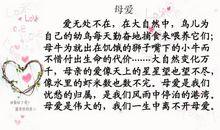 母爱
爱无处不在，在大自然中，鸟儿为
自己的幼鸟每天勤奋地捕食来喂养它们；
母牛为就出在饥饿的狮子嘴下的小牛而
不惜付出生命的代价……大自然变化万
千，母亲的爱像天上的星星望也望不尽，
像水里的虾米数也数不完。母爱是我们
忧愁的归属，是我们风雨中停泊的港湾。
母爱是伟大的，我们一生中离不开母爱。